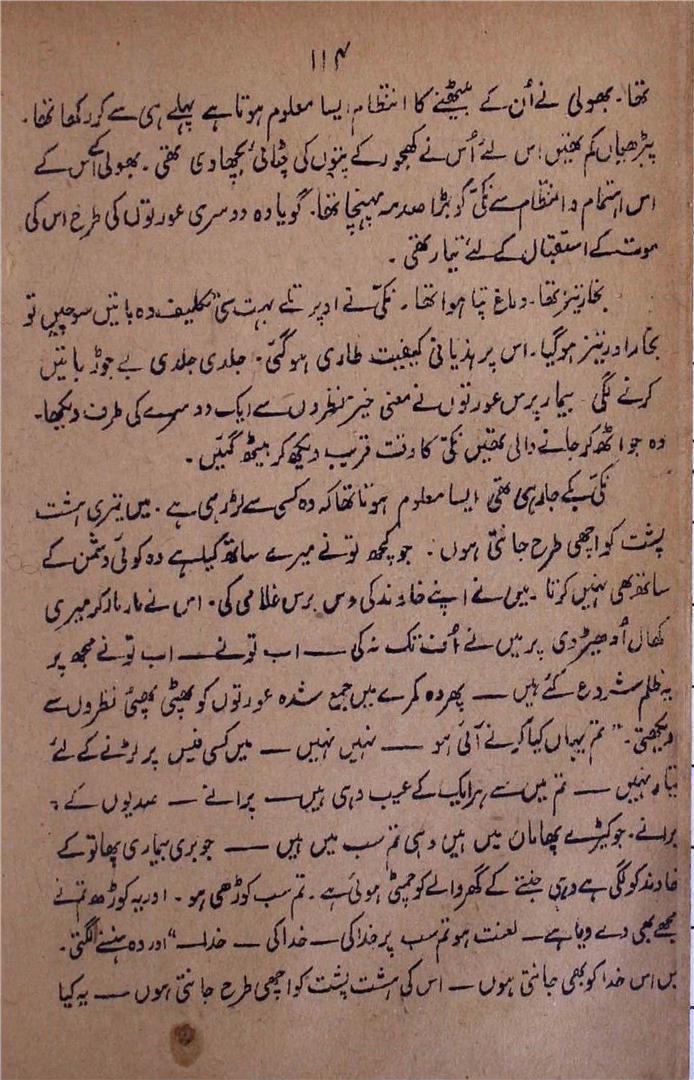 ۱۱۴
تھا۔ بھولی نے اُن کے بیٹھنے کا انتظام ایسا معلوم ہوتا ہے پہلے ہی سے کر رکھا تھا۔
پیڑھیاں کم تھیں اس لئے اُس نے کھجور کے پتوں کی چٹائی بچھا دی تھی۔ بھولی کے اس کے
اس اہتمام و انتظام سے نکّی کو بڑا صدمہ پہنچا تھا۔ گویا وہ دوسری عورتوں کی طرح اس کی
موت کے استقبال کے لئے تیار تھی۔
بخار تیز تھا۔ دماغ تپا ہوا تھا۔ نکّی نے اوپر تلے بہت سی تکلیف دہ باتیں سوچیں تو
بخار اور تیز ہوگیا۔ اس پر ہذیانی کیفیت طاری ہوگئی۔ جلدی جلدی بے جوڑ باتیں
کرنے لگی۔ بیمار پرس عورتوں نے معنی خیز نظروں سے ایک دوسرے کی طرف دیکھا۔
وہ جو اٹھ کر جانے والی تھیں نکّی کا وقت قریب دیکھ کر بیٹھ گئیں۔
نکّی بکے جا رہی تھی ایسا معلوم ہوتا تھا کہ وہ کسی سے لڑ رہی ہے۔ میں تیری ہشت
پشت کو اچھی طرح جانتی ہوں۔ جو کچھ تو نے میرے ساتھ کیا ہے وہ کوئی دشمن کے
ساتھ بھی نہیں کرتا۔ میں نے اپنے خاوند کی دس برس غلامی کی۔ اس نے مار مار کر میری
کھال اُدھیڑ دی پر میں نے اُف تک نہ کی — اب تو نے — اب تو نے مجھ پر
یہ ظلم شروع کئے ہیں — پھر وہ کمرے میں جمع شدہ عورتوں کو پھٹی پھٹی نظروں سے
دیکھتی۔ ”تم یہاں کیا کرنے آئی ہو — نہیں نہیں — میں کسی فیس پر لڑنے کے لئے
تیار نہیں — تم میں سے ہر ایک کے عیب وہی ہیں — پرانے — صدیوں کے
پرانے۔ جو کیڑے پھاماں میں ہیں وہی تم سب میں ہیں — جو بری بیماری پھاتو کے
خاوند کو لگی ہے وہی جنتے کے گھر والے کو چمٹی ہوئی ہے۔ تم سب کوڑھی ہو۔ اور یہ کوڑھ تم نے
مجھے بھی دے دیا ہے — لعنت ہو تم سب پر خدا کی — خدا کی — خدا —“ اور وہ ہنسنے لگتی۔
میں اس خدا کو بھی جانتی ہوں — اس کی ہشت پشت کو اچھی طرح جانتی ہوں — یہ کیا